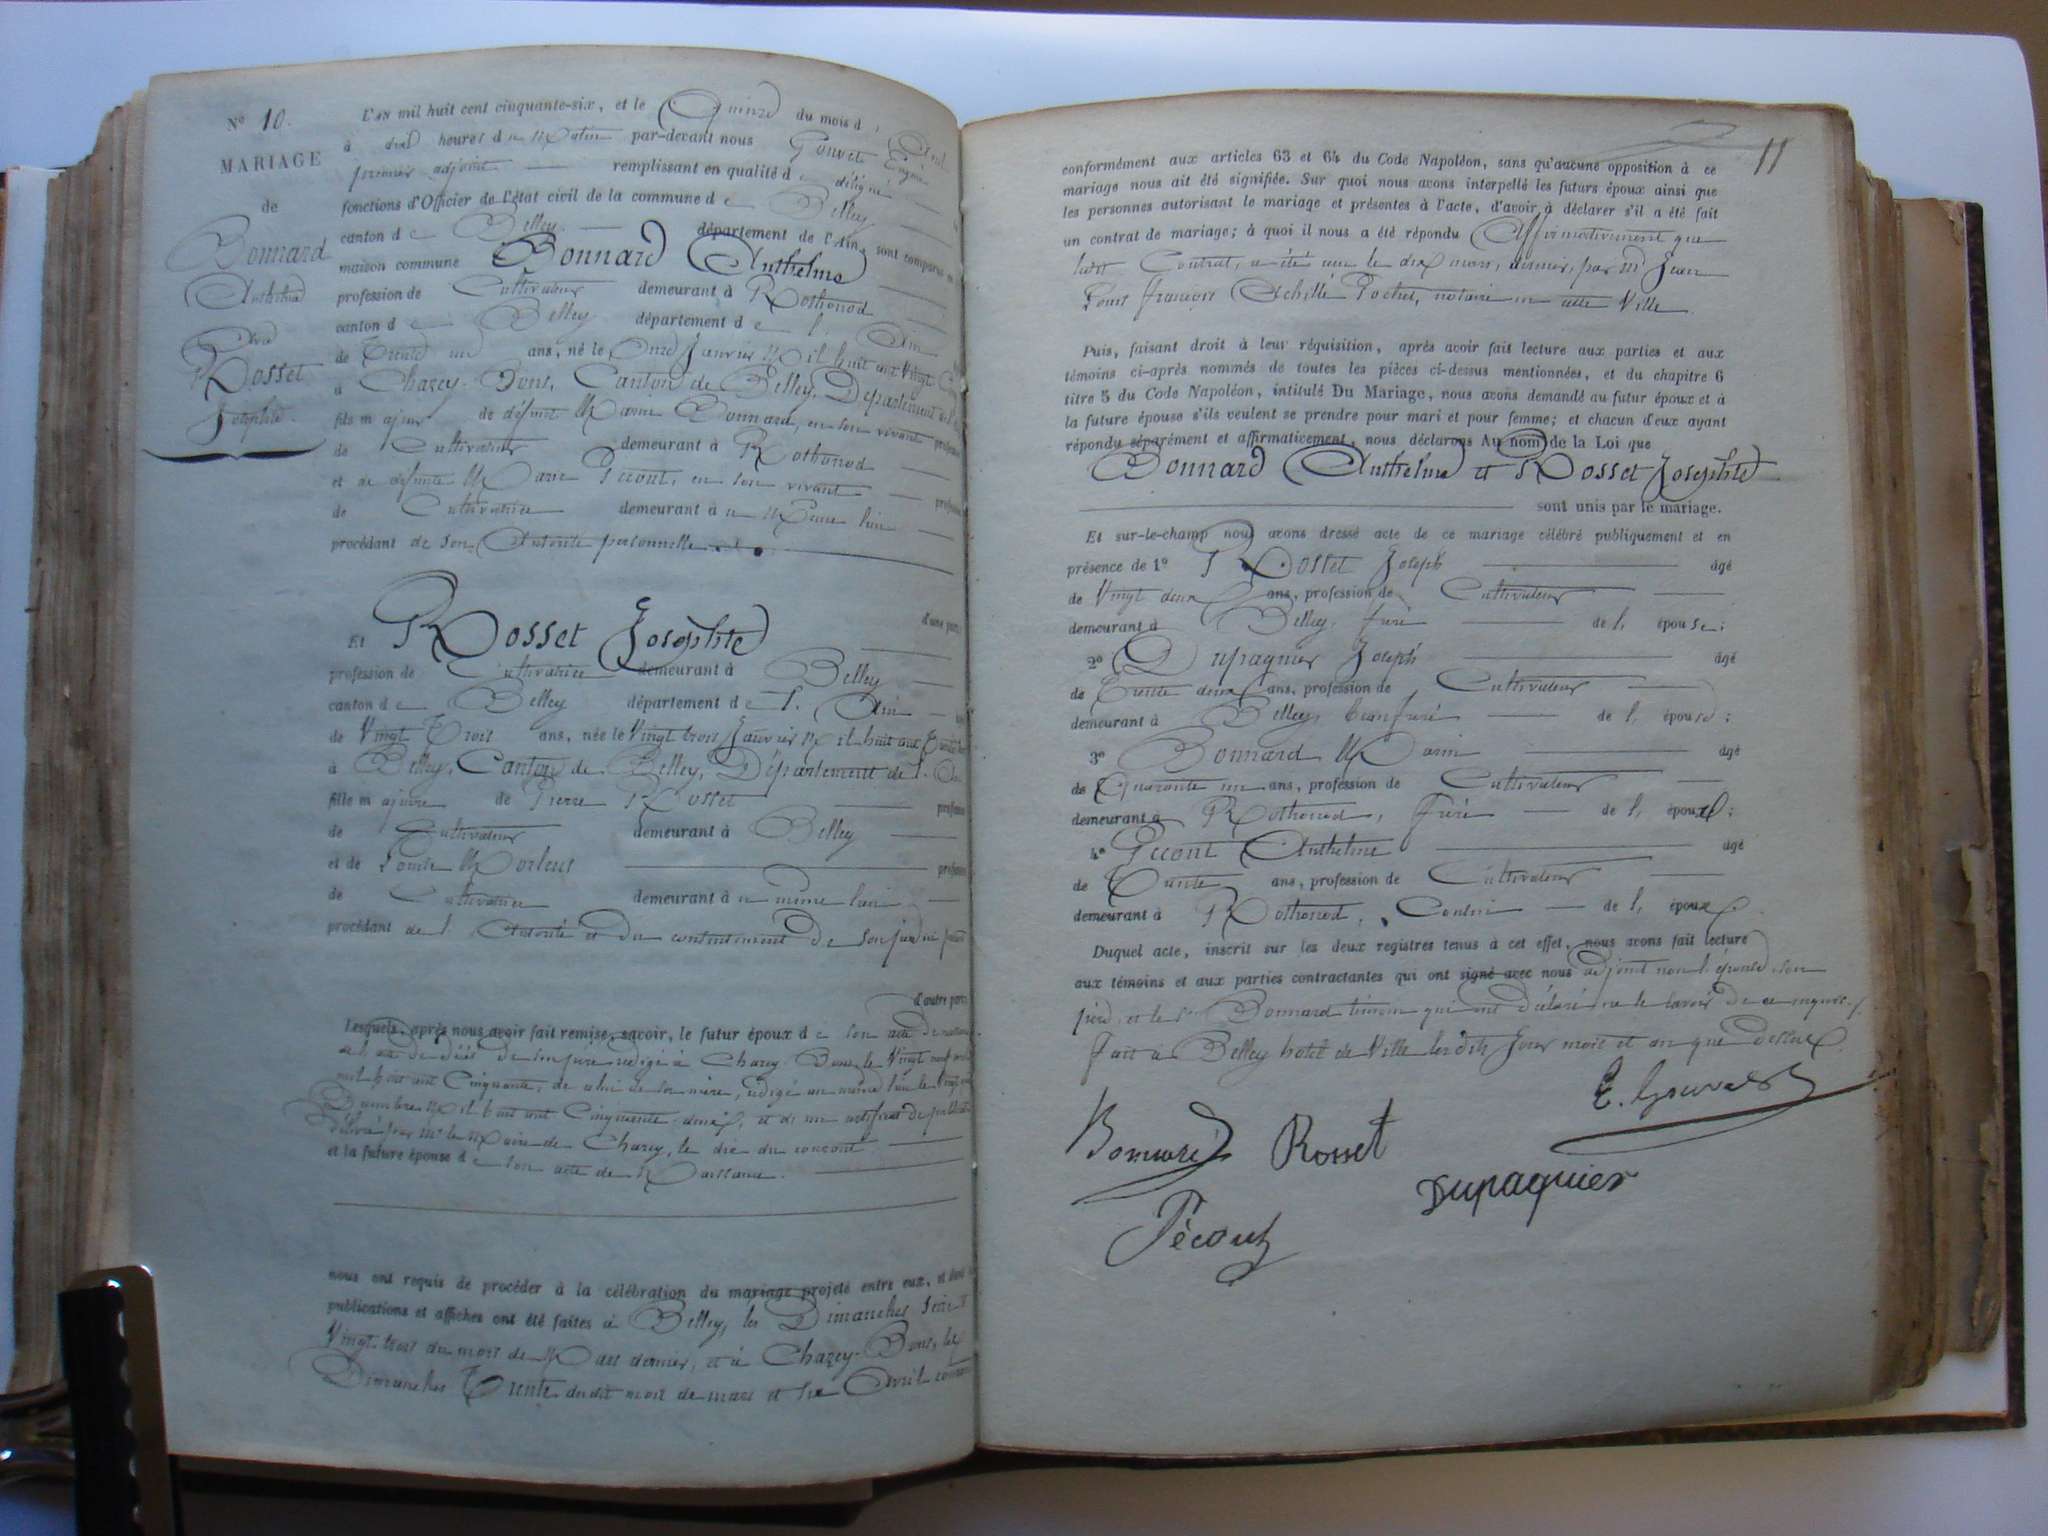 N° 10.
MARIAGE
de
Bonnard
Anthelme
Rosset
Josephte.
L'AN mil huit cent cinquante-six, et le Quinze du mois d'Avril
à dix heures du Matin par-devant nous Gouvet Eugène
premier adjoint remplissant en qualité de délégué
fonctions d'Officier de l'état civil de la commune de Belley
canton de Belley département de l'Ain, sont comparus
maison commune Bonnard Anthelme
profession de Cultivateur demeurant à Rothonod
canton de Belley département de l'Ain
de Trente un ans, né le Onze Janvier Mil huit cent Vingt
à Chazey-Bons, Canton de Belley, Département
fils majeur de défunt Marin Bonnard, en son vivant profession
de Cultivateur demeurant à Rothonod
et de défunte Marie Pécout, en son vivant profession
de Cultivatrice demeurant à même lieu
procédant de son Autorité personnelle
d'une part;
Et Rosset Josephte
profession de Cultivatrice demeurant à Belley
canton de Belley département de l'Ain
de Vingt Trois ans, née le Vingt trois Janvier Mil huit cent Trente
à Belley, Canton de Belley, Département de l'Ain
fille majeure de Pierre Rosset profession
de Cultivateur demeurant à Belley
et de Louise profession
de Cultivatrice demeurant à même lieu
procédant de l'Autorité et du consentement de son
d'autre part;
Lesquels, après nous avoir fait remise, savoir, le futur époux de son acte de
de décès de son père rédigé à Chazey-Bons, le Vingt neuf
mil huit cent Cinquante, de celui de sa mère, rédigé au même lieu le
Mil huit cent Cinquante deux, et d'un certificat de
délivré par Mr le Maire de Chazey, le dix du courant
et la future épouse de son acte de Naissance.
nous ont requis de procéder à la célébration du mariage projeté entre eux, et dont
publications et affiches ont été faites à Belley, les Dimanches seize
Vingt-trois du mois de Mars dernier, et à Chazey-Bons, les
Dimanches Trente dudit mois de mars et six Avril courant
11
conformément aux articles 63 et 64 du Code Napoléon, sans qu'aucune opposition à ce
mariage nous ait été signifiée. Sur quoi nous avons interpellé les futurs époux ainsi que
les personnes autorisant le mariage et présentes à l'acte, d'avoir à déclarer s'il a été fait
un contrat de mariage; à quoi il nous a été répondu Affirmativement que
ledit Contrat, a été reçu le dix mars, dernier, par Me Jean
Louis françois Achille Rochet, notaire en cette Ville
Puis, faisant droit à leur réquisition, après avoir fait lecture aux parties et aux
témoins ci-après nommés de toutes les pièces ci-dessus mentionnées, et du chapitre 6
titre 5 du Code Napoléon, intitulé Du Mariage, nous avons demandé au futur époux et à
la future épouse s'ils veulent se prendre pour mari et pour femme; et chacun d'eux ayant
répondu séparément et affirmativement, nous déclarons Au nom de la Loi que
Bonnard Anthelme et Rosset Josephte
sont unis par le mariage.
Et sur-le-champ nous avons dressé acte de ce mariage célébré publiquement et en
présence de 1° Rosset Joseph âgé
de Vingt deux ans, profession de Cultivateur
demeurant à Belley, frère de l'épouse;
2° Dupaquier Joseph âgé
de Trente deux ans, profession de Cultivateur
demeurant à Belley, beau frère de l'épouse;
3° Bonnard Marin âgé
de Quarante un ans, profession de Cultivateur
demeurant à Rothonod, Frère de l'époux;
4° Pécout Anthelme âgé
de Trente ans, profession de Cultivateur
demeurant à Rothonod, Cousin de l'époux.
Duquel acte, inscrit sur les deux registres tenus à cet effet, nous avons fait lecture
aux témoins et aux parties contractantes qui ont signé avec nous adjoint non l'épouse, son
père, et le sr Bonnard témoin qui ont déclaré ne le savoir de ce requis.
fait à Belley hotel de Ville lesdits Jour mois et an que dessus.
E. Gouvet
Bonnard Rosset
Dupaquier
Pécout